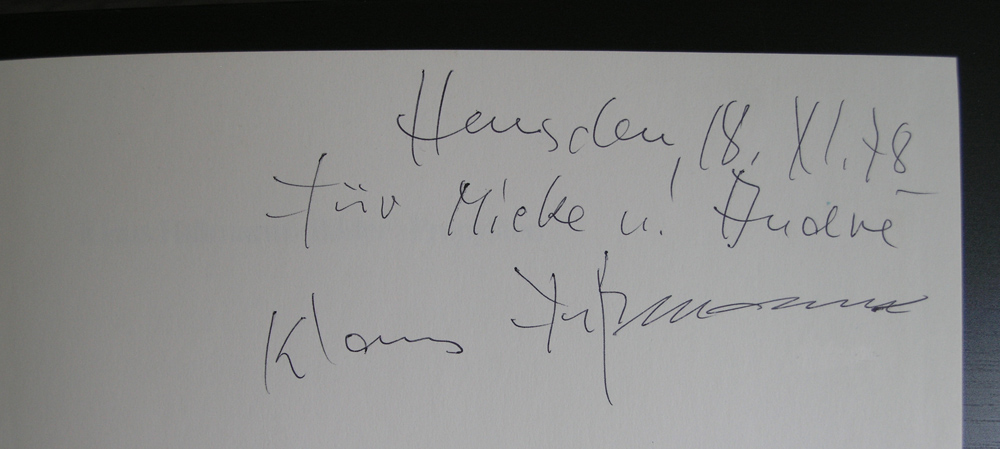 Heusden, 18. XI. 78
Für Mieke u. André
Klaus